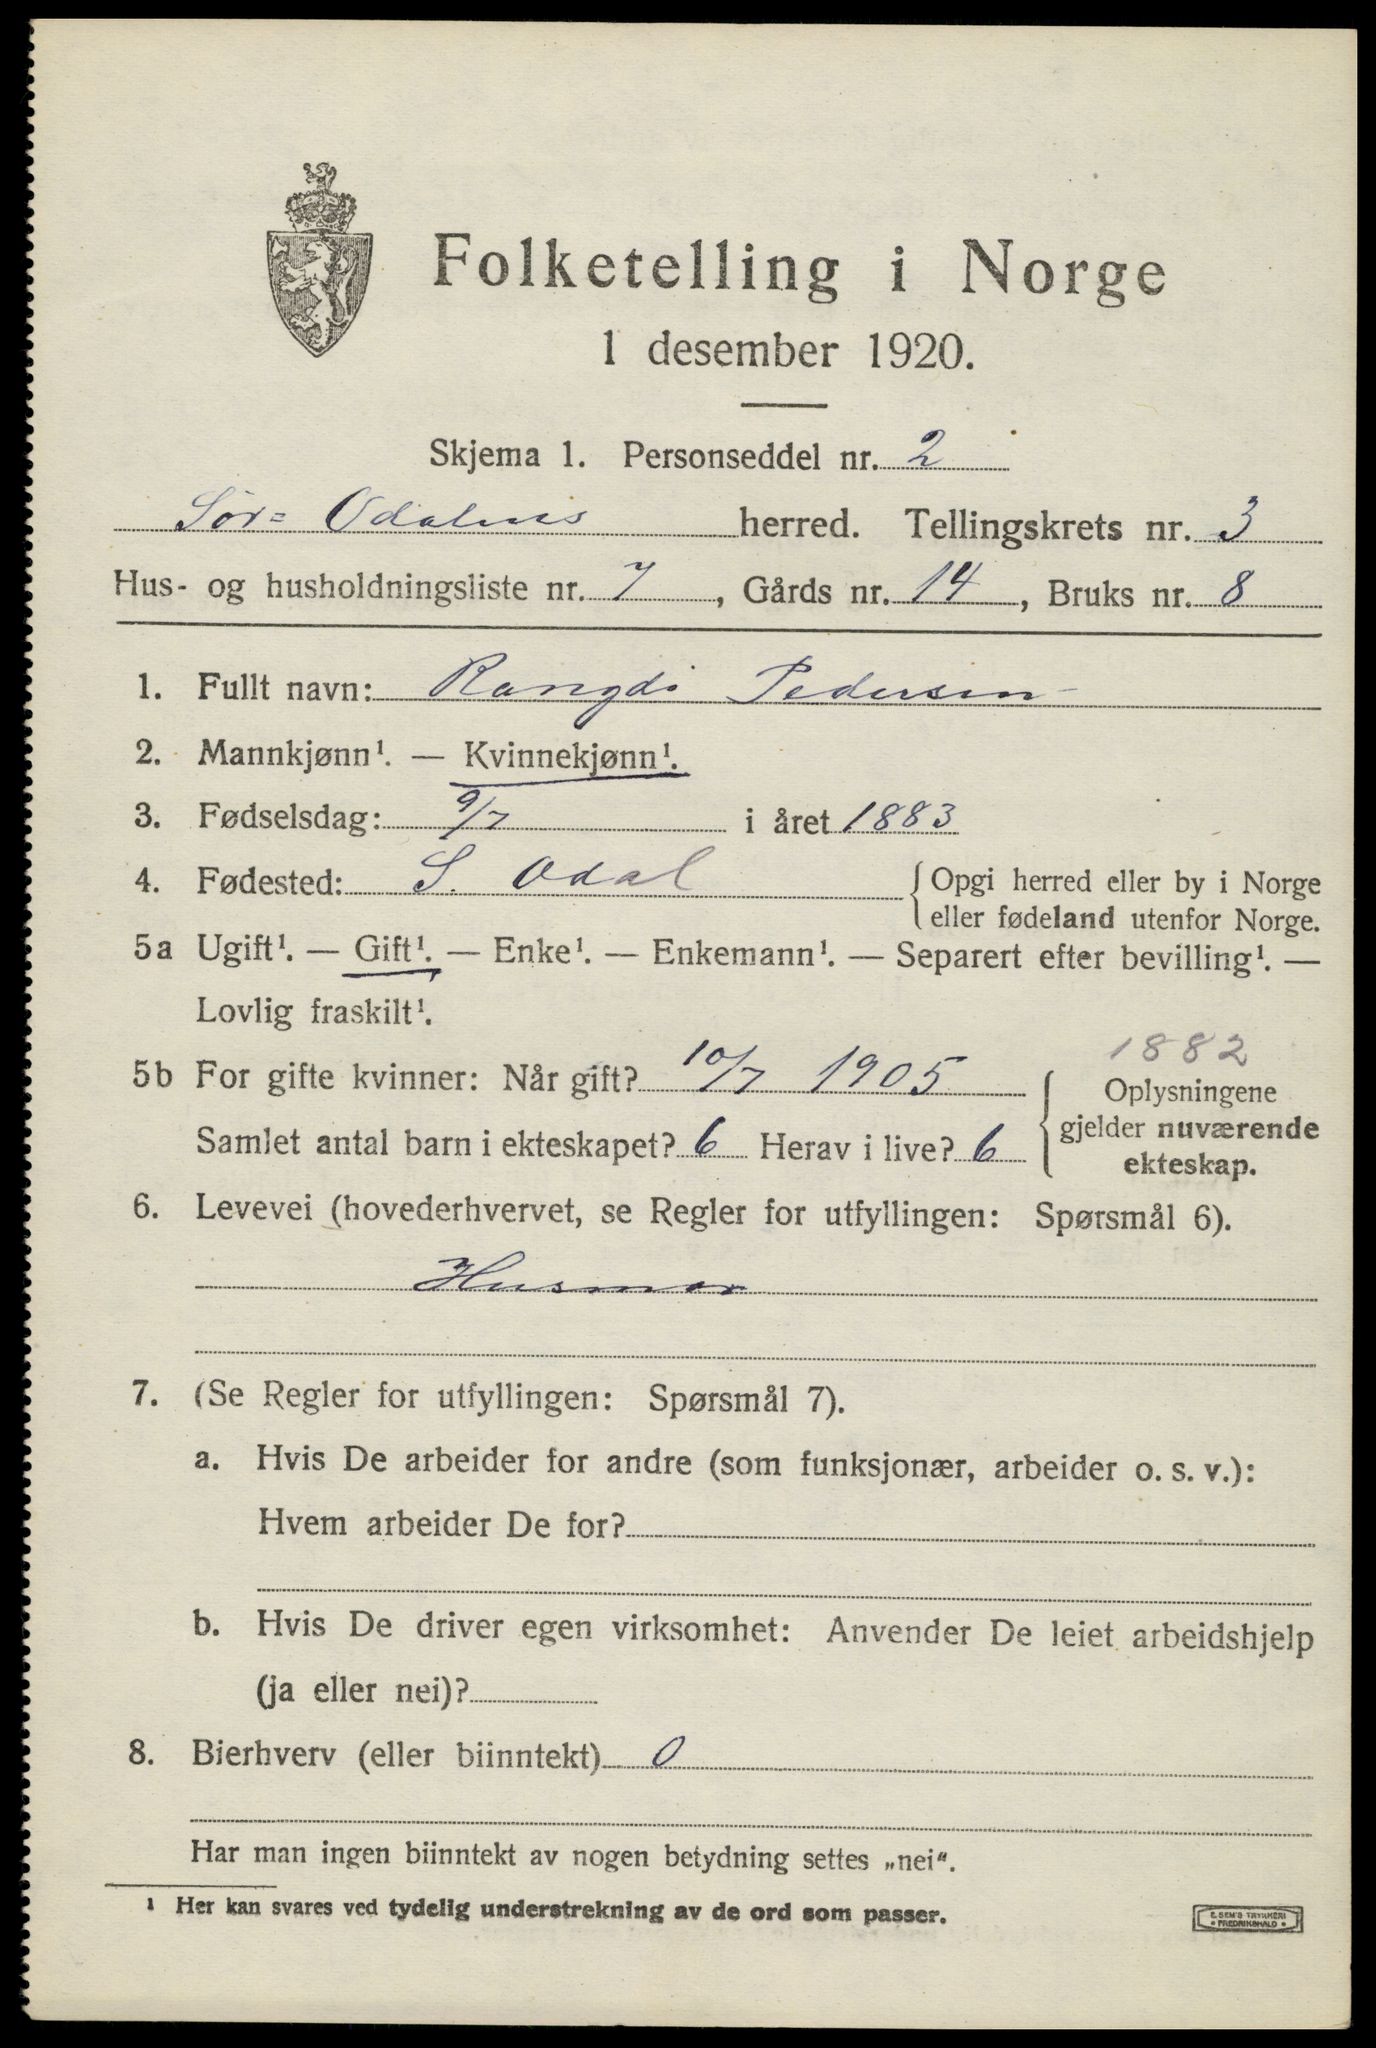 Folketelling i Norge
1 desember 1920.
Skjema 1. Personseddel nr. 2
Sør= Odalens herred. Tellingskrets nr. 3
Hus- og husholdningsliste nr. 7, Gårds nr. 14, Bruks nr. 8
1. Fullt navn: Rangdi Pedersen
2. Mannkjønn¹. — Kvinnekjønn¹.
3. Fødselsdag: 9/7 i året 1883
4. Fødested: S. Odal { Opgi herred eller by i Norge
eller fødeland utenfor Norge.
5a Ugift¹. — Gift¹. — Enke¹. — Enkemann¹. — Separert efter bevilling¹. —
Lovlig fraskilt¹.
1882
5b For gifte kvinner: Når gift? 10/7 1905 { Oplysningene
gjelder nuværende
ekteskap.
Samlet antal barn i ekteskapet? 6 Herav i live? 6
6. Levevei (hovederhvervet, se Regler for utfyllingen: Spørsmål 6).
Husmor
7. (Se Regler for utfyllingen: Spørsmål 7).
a. Hvis De arbeider for andre (som funksjonær, arbeider o. s. v.):
Hvem arbeider De for?
b. Hvis De driver egen virksomhet: Anvender De leiet arbeidshjelp
(ja eller nei)?
8. Bierhverv (eller biinntekt) 0
Har man ingen biinntekt av nogen betydning settes „nei“.
¹ Her kan svares ved tydelig understrekning av de ord som passer.
E. SEM'S TRYKKERI
• FREDRIKSHALD •